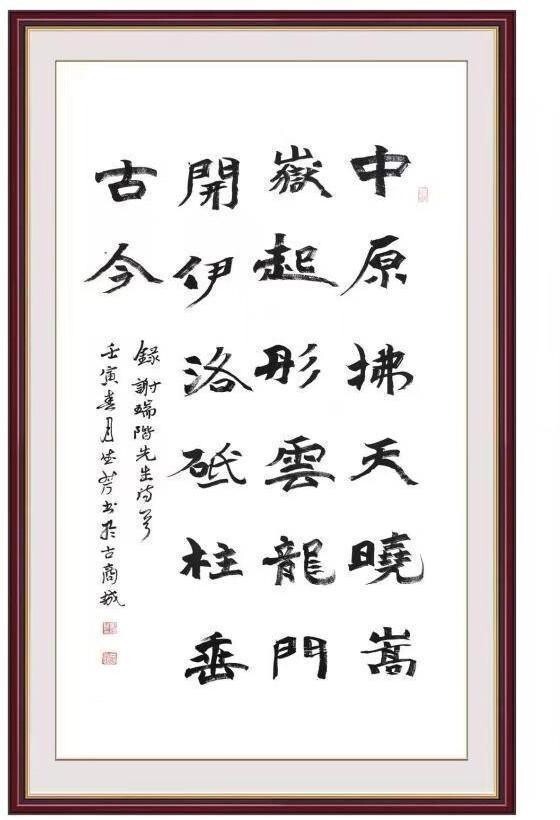 中原拂天曉嵩
嶽起彤雲龍門
開伊洛砥柱垂
古今
録謝瑞階先生诗
壬寅春月芳书於古商城